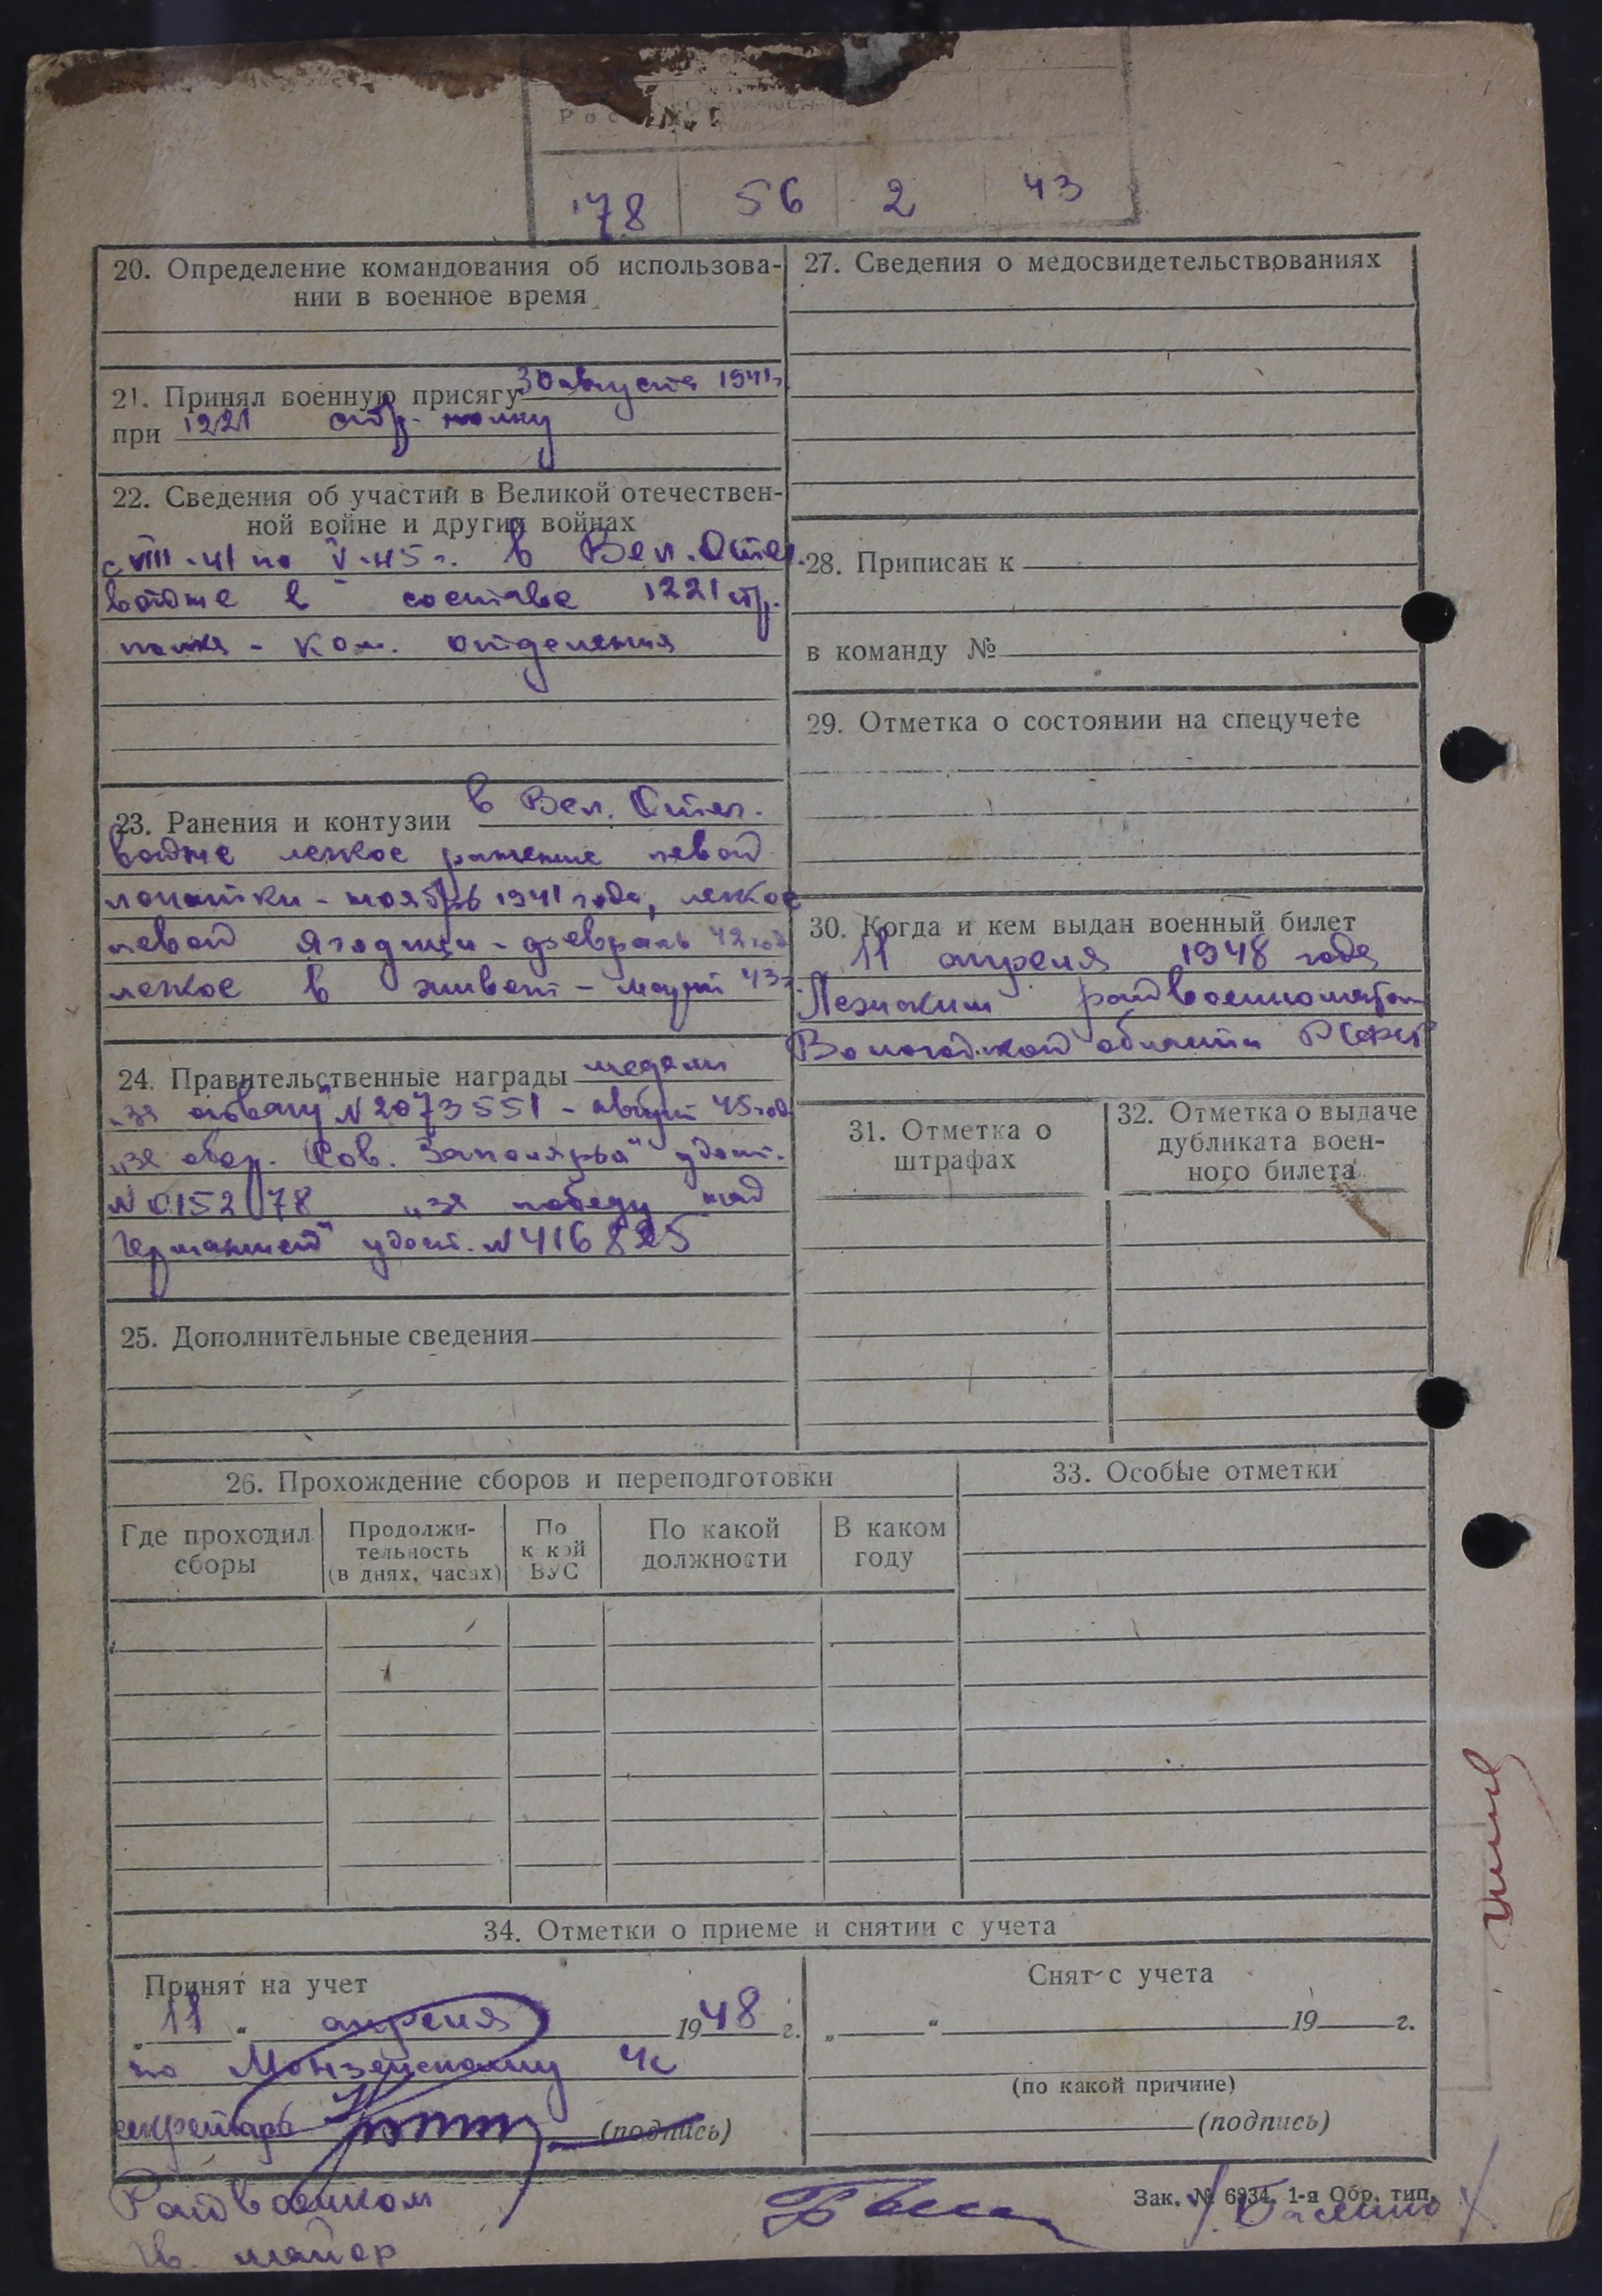 Рос
78 56 2 43
20. Определение командования об использова-
нии в военное время
21. Принял военную присягу 30 августа 1941г.
при 1221 стр. полку
22. Сведения об участии в Великой отечествен-
ной войне и других войнах
с VIII-41 по V-45 г. в Вел. Отеч.
войне в составе 1221 стр.
полка - ком. отделения
23. Ранения и контузии в Вел. Отеч.
войне легкое ранение левой
лопатки - ноябрь 1941 года, легкое
левой ягодицы - февраль 42 год
легкое в живот - март 43 г.
24. Правительственные награды медали
„за отвагу" N 2073551 - август 45 год
„за обор. Сов. Заполярья" удост.
N 015278 „за победу над
Германией" удост. N 416825
25. Дополнительные сведения
26. Прохождение сборов и переподготовки
Где проходил
сборы
Продолжи-
тельность
(в днях, часах)
По
к кой
ВУС
По какой
должности
В каком
году
27. Сведения о медосвидетельствованиях
28. Приписан к
в команду №
29. Отметка о состоянии на спецучете
30. Когда и кем выдан военный билет
11 апреля 1948 года
райвоенкоматом
Вологодской области РСФСР
31. Отметка о
штрафах
32. Отметка о выдаче
дубликата воен-
ного билета
33. Особые отметки
34. Отметки о приеме и снятии с учета
Принят на учет
„ 11 " апреля 1948 г.
по Монзенскому
секретарь (подпись)
Снят с учета
„ " 19 г.
(по какой причине)
(подпись)
Райвоенком
гв. майор
Зак. № 6934. 1-я Обр. тип.